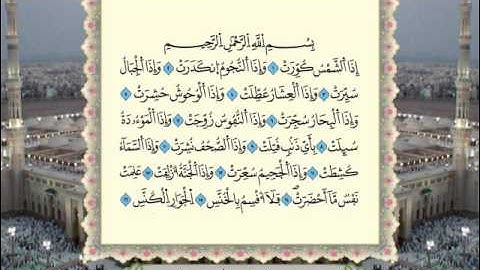 بِسْمِ اللَّهِ الرَّحْمَٰنِ الرَّحِيمِ
إِذَا الشَّمْسُ كُوِّرَتْ ۝١ وَإِذَا النُّجُومُ انكَدَرَتْ ۝٢ وَإِذَا الْجِبَالُ
سُيِّرَتْ ۝٣ وَإِذَا الْعِشَارُ عُطِّلَتْ ۝٤ وَإِذَا الْوُحُوشُ حُشِرَتْ ۝٥
وَإِذَا الْبِحَارُ سُجِّرَتْ ۝٦ وَإِذَا النُّفُوسُ زُوِّجَتْ ۝٧ وَإِذَا الْمَوْءُودَةُ
سُئِلَتْ ۝٨ بِأَيِّ ذَنبٍ قُتِلَتْ ۝٩ وَإِذَا الصُّحُفُ نُشِرَتْ ۝١٠ وَإِذَا السَّمَاءُ
كُشِطَتْ ۝١١ وَإِذَا الْجَحِيمُ سُعِّرَتْ ۝١٢ وَإِذَا الْجَنَّةُ أُزْلِفَتْ ۝١٣ عَلِمَتْ
نَفْسٌ مَّا أَحْضَرَتْ ۝١٤ فَلَا أُقْسِمُ بِالْخُنَّسِ ۝١٥ الْجَوَارِ الْكُنَّسِ ۝١٦